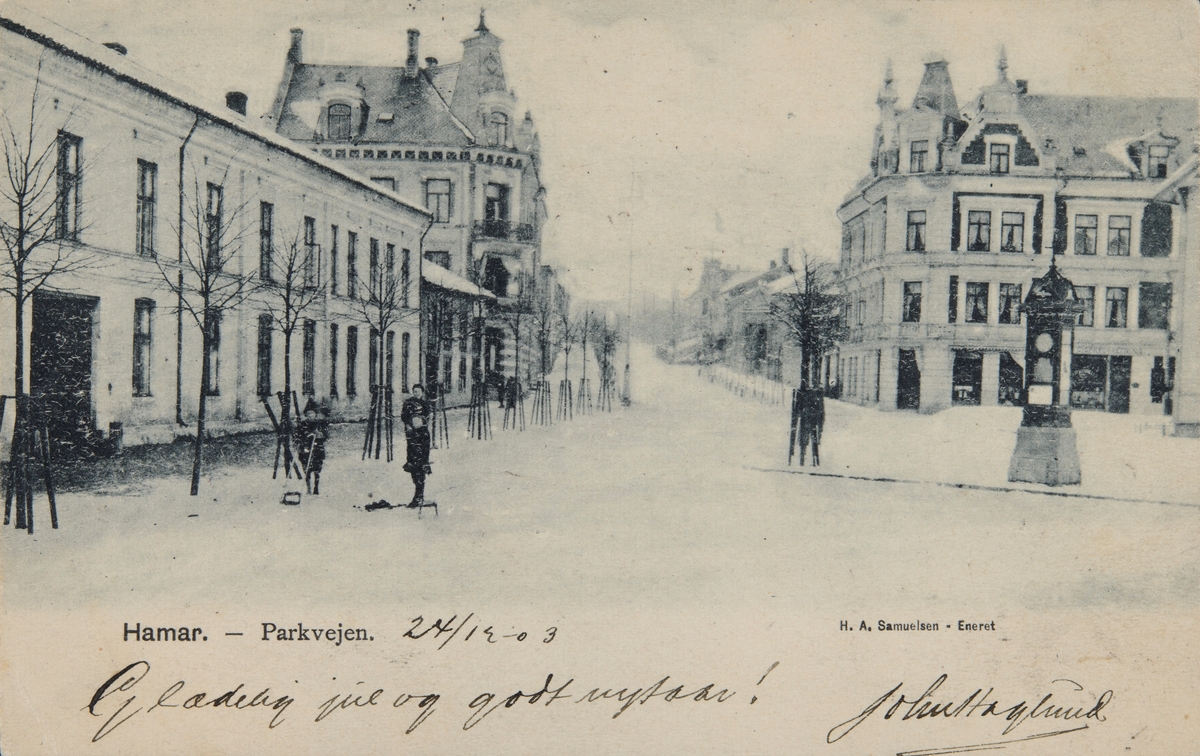 Hamar. — Parkvejen. 24/12-03
H. A. Samuelsen - Eneret
Glædelig jul og godt nytaar!
John Haglund